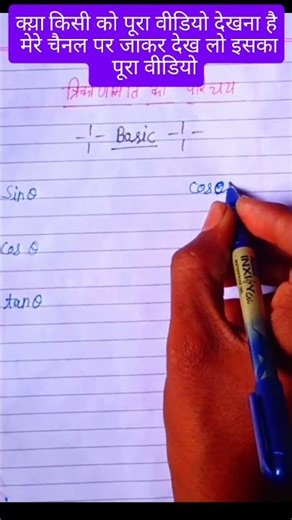 क्या किसी को पूरा वीडियो देखना है
मेरे चैनल पर जाकर देख लो इसका
पूरा वीडियो
त्रिकोणमिति का परिचय
Basic
Sinθ
cosθ
cos θ
tanθ